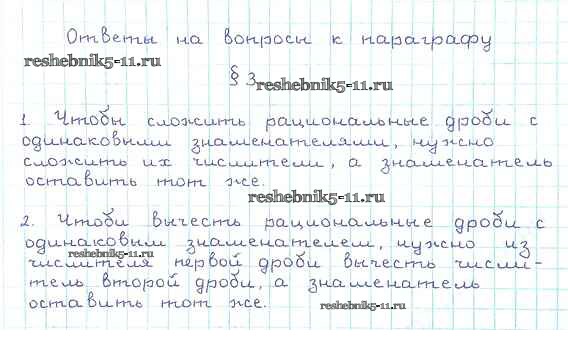 Ответы на вопросы к параграфу
reshebnik5-11.ru
§ 3
reshebnik5-11.ru
1. Чтобы сложить рациональные дроби с
одинаковыми знаменателями, нужно
сложить их числители, а знаменатель
оставить тот же.
reshebnik5-11.ru
2. Чтоби вычесть рациональные дроби с
одинаковым знаменателем, нужно из
reshebnik5-11.ru
числителя первой дроби вычесть числи-
тель второй дроби, а знаменатель
оставить тот же.
reshebnik5-11.ru